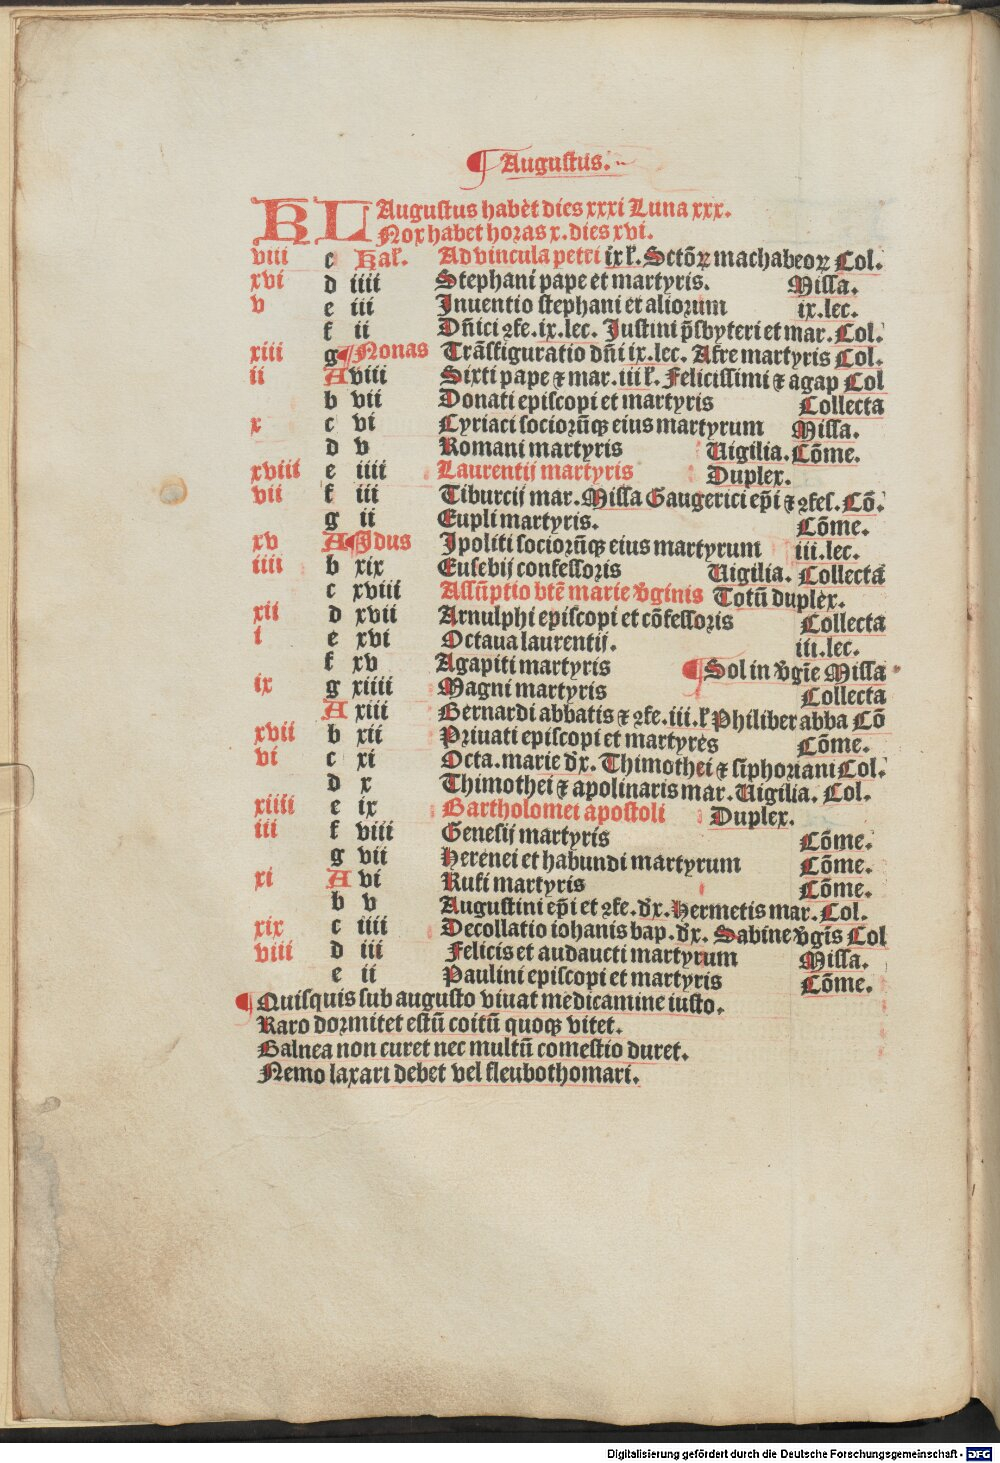 ¶ Augustus.
KL Augustus habet dies xxxi Luna xxx.
Nox habet horas x. dies xvi.
viii c Kal'. Ad vincula petri ix l'. Sctõꝝ machabeoꝝ Col.
xvi d iiii Stephani pape et martyris. Missa.
v e iii Inuentio stephani et aliorum ix.lec.
f ii Dñici ꝯfe.ix.lec. Iustini p̃sbyteri et mar. Col.
xiii g ¶Nonas Trãsfiguratio dñi ix.lec. Afre martyris Col.
ii A viii Sixti pape ⁊ mar.iii l'. Felicissimi ⁊ agap Col
b vii Donati episcopi et martyris Collecta
x c vi Cyriaci sociorũqꝫ eius martyrum Missa.
d v Romani martyris Uigilia. Cõme.
xviii e iiii Laurentij martyris Duplex.
vii f iii Tiburcij mar. Missa Gaugerici ep̃i ⁊ ꝯfes. Cõ.
g ii Eupli martyris. Cõme.
xv A ¶Idus Ipoliti sociorũqꝫ eius martyrum iii.lec.
iiii b xix Eusebij confessoris Uigilia. Collecta
c xviii Assũptio btẽ marie v̾ginis Totũ duplex.
xii d xvii Arnulphi episcopi et cõfessoris Collecta
i e xvi Octaua laurentij. iii.lec.
f xv Agapiti martyris ¶ Sol in v̾gĩe Missa
ix g xiiii Magni martyris Collecta
A xiii Bernardi abbatis ⁊ ꝯfe.iii.l' Philiber abba Cõ
xvii b xii Priuati episcopi et martyres Cõme.
vi c xi Octa.marie d̾x. Thimothei ⁊ siphoriani Col.
d x Thimothei ⁊ apolinaris mar. Uigilia. Col.
xiiii e ix Bartholomei apostoli Duplex.
iii f viii Genesij martyris Cõme.
g vii Herenei et habundi martyrum Cõme.
xi A vi Rufi martyris Cõme.
b v Augustini ep̃i et ꝯfe.d̾x. Hermetis mar. Col.
xix c iiii Decollatio iohanis bap.d̾x. Sabine v̾gĩs Col
viii d iii Felicis et audaucti martyrum Missa.
e ii Paulini episcopi et martyris Cõme.
¶ Quisquis sub augusto viuat medicamine iusto.
Raro dormitet estũ coitũ quoqꝫ vitet.
Balnea non curet nec multũ comestio duret.
Nemo laxari debet vel fleubothomari.
Digitalisierung gefördert durch die Deutsche Forschungsgemeinschaft - DFG